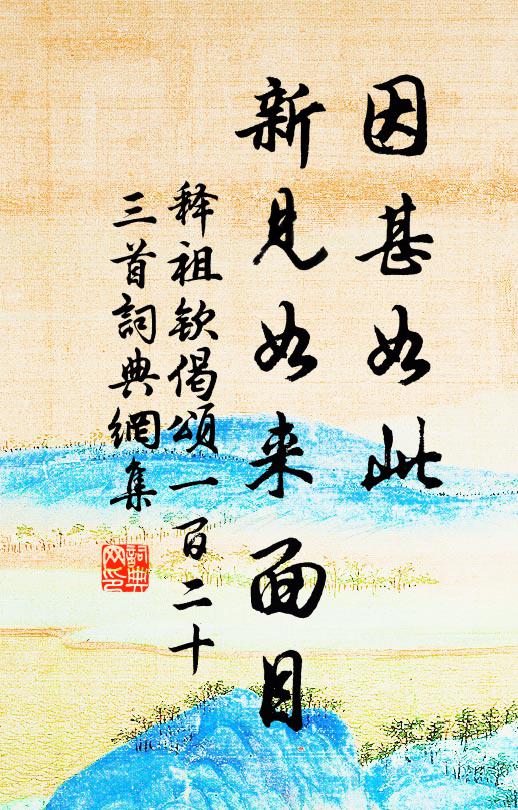 因甚如此
新見如来面目
释祖钦偈頌一百二十
三首詞典網集
詞典
网印